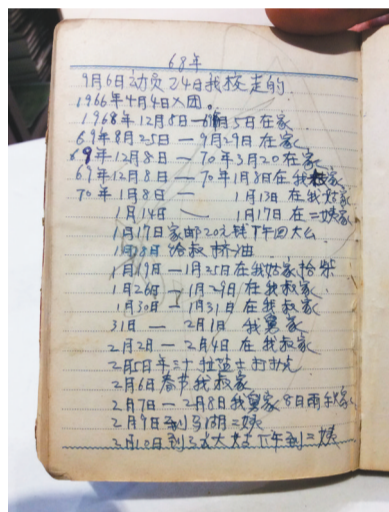 68年
9月6日动员24日我校走的.
1966年4月4日入团。
1968年12月5日—1月5日在家
69年8月25日—9月29日在家
69年12月8日—70年3月20在家
69年12月8日—70年1月8日在我家
70年1月8日— 1月13日在我姑家
1月14日— 1月17日在二姨家
1月17日家邮20元钱下午回大公
1月18日给叔桥油
1月19日—1月25日在我姑家
1月26日—1月29日在我叔家.
1月30日—1月31日在我叔家
31日—2月1日 我舅家
2月2日—2月4日在我叔家
2月5日年三十拉
2月6日春节我叔家
2月7日—2月8日我舅家8日雨
2月9日到 二姨
2月10日到 大姑下午到二姨